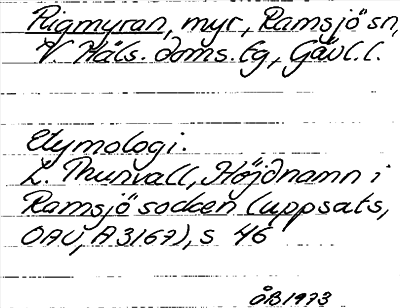 Rigmyran, myr, Ramsjö sn,
V. Häls. doms.lg, Gävl.l.
Etymologi.
L. Thunvall, Höjdnamn i
Ramsjö socken (uppsats,
OAU, A 3167), s 46
ÅB 1973